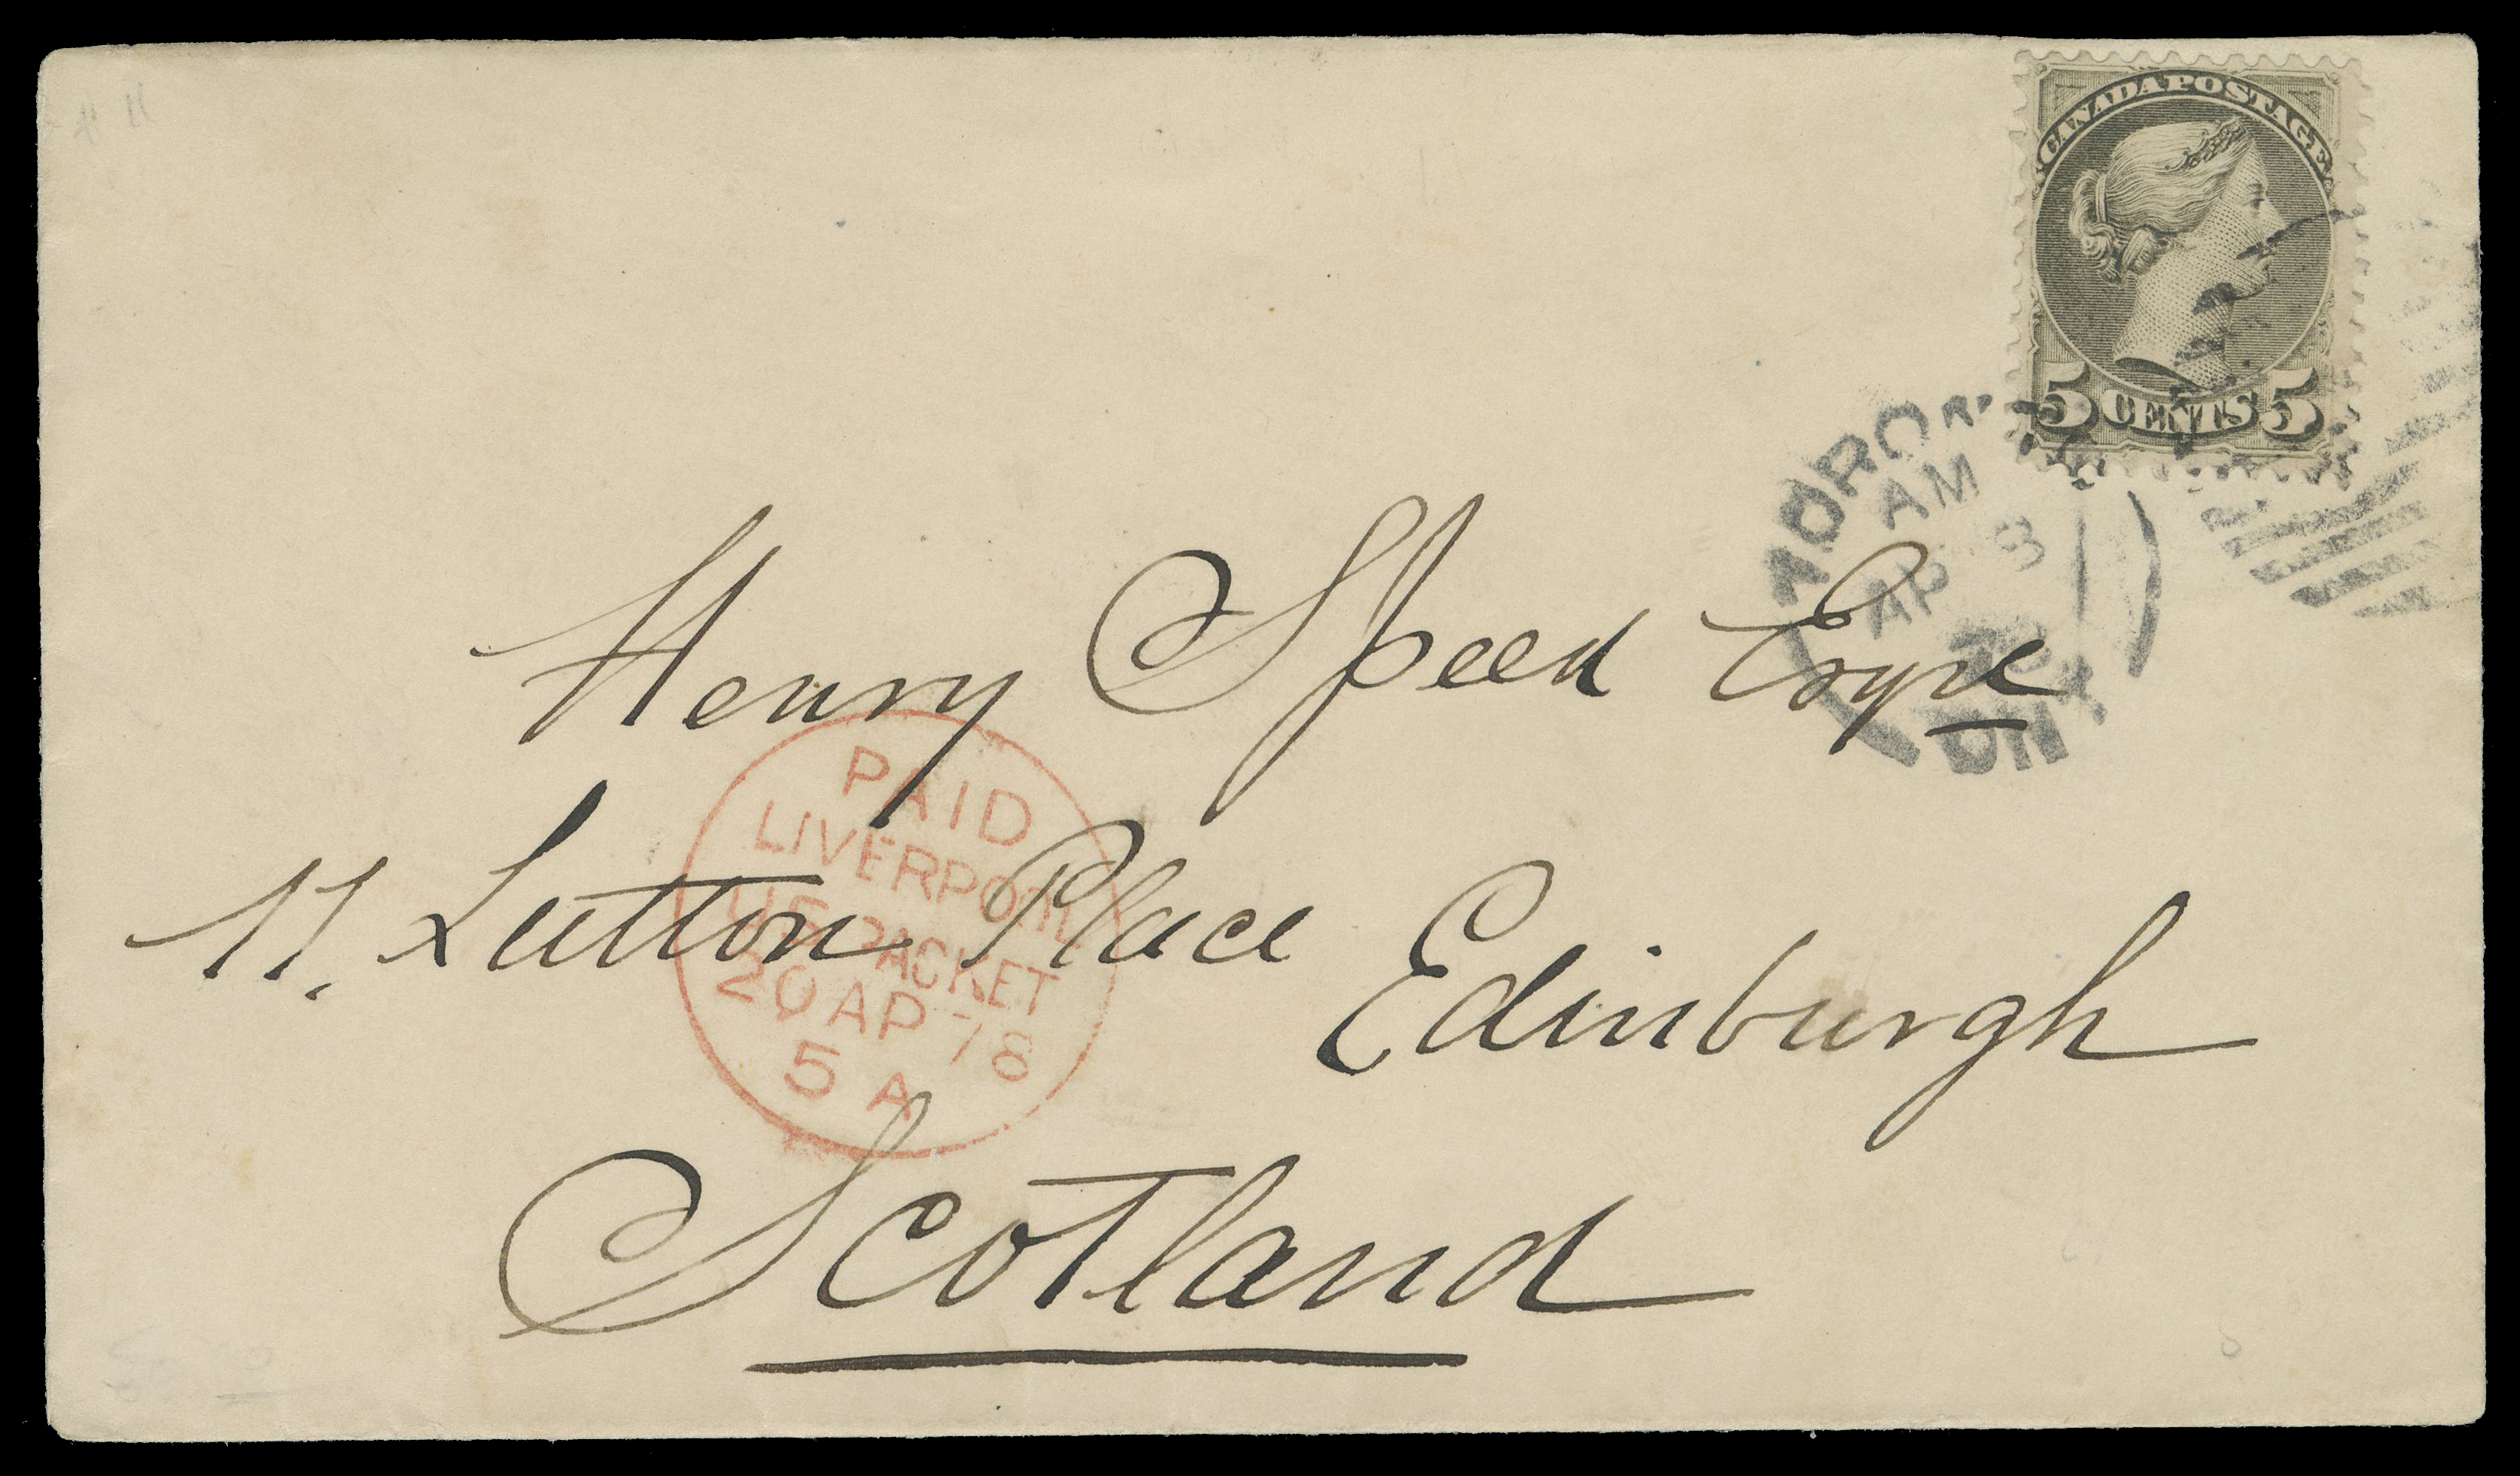 CANADA POSTAGE
5 CENTS 5
AM
AP 8
78
ONT
Henry Speed Esqre
PAID
LIVERPOOL
US PACKET
20 AP 78
5 A
11. Lutton Place Edinburgh
Scotland